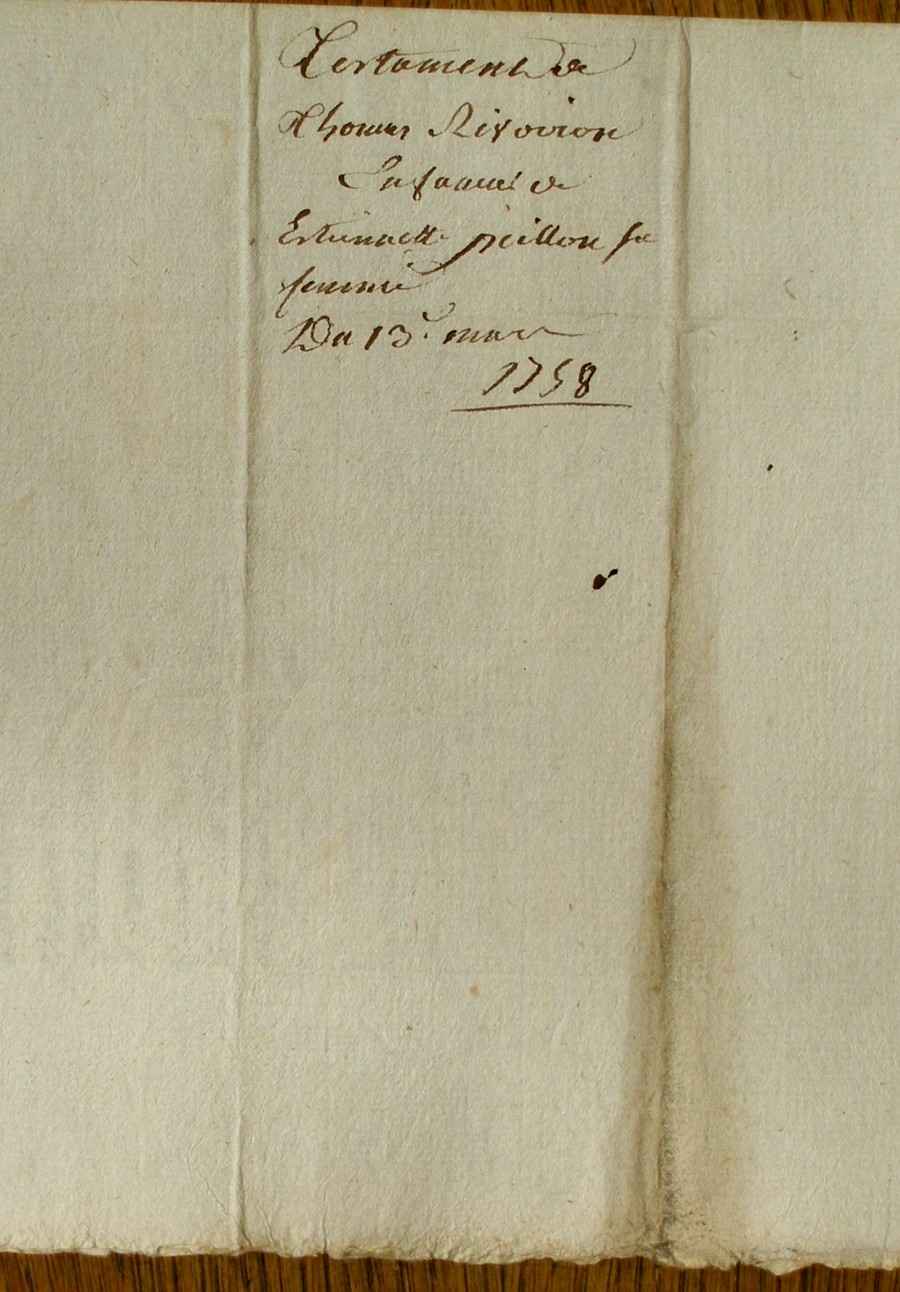 Testament de
Thomas Rivoiron
En faveur de
Estiennette peillon sa
femme
Du 13e. mars
1758